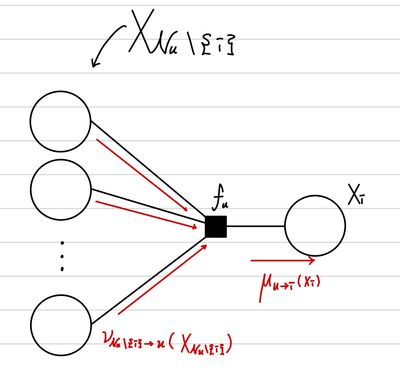 X_{N_u∖{i}}
f_u
X_i
μ_{u→i}(x_i)
ν_{N_u∖{i}→u}(X_{N_u∖{i}})